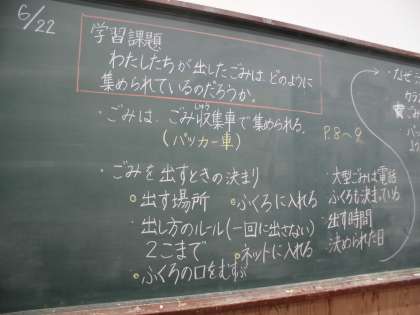 6/22
学習課題
わたしたちが出したごみは、どのように
集められているのだろうか。
・ごみは、ごみ収集車で集められる。
しゅう
(パッカー車)
P.8〜9
・ごみを出すときの決まり
出す場所
ふくろに入れる
出し方のルール(一回に出さない)
2こまで
ネットに入れる
ふくろの口をむすぶ
・大型ごみは電話
ふくろも決まっている
出す時間
決められた日
・なぜ
カラ